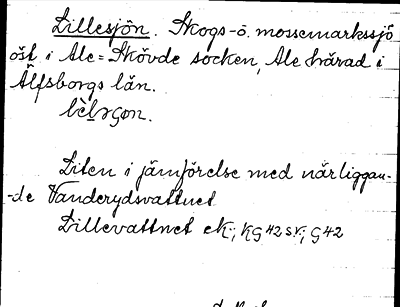 Lillesjön. Skogs- o. mossemarkssjö
öst i Ale-Skövde socken, Ale härad i
Älfsborgs län.
Liten i jämförelse med närliggan-
-de Vanderydsvattnet
Lillevattnet ek; KG 42 sv; G 42